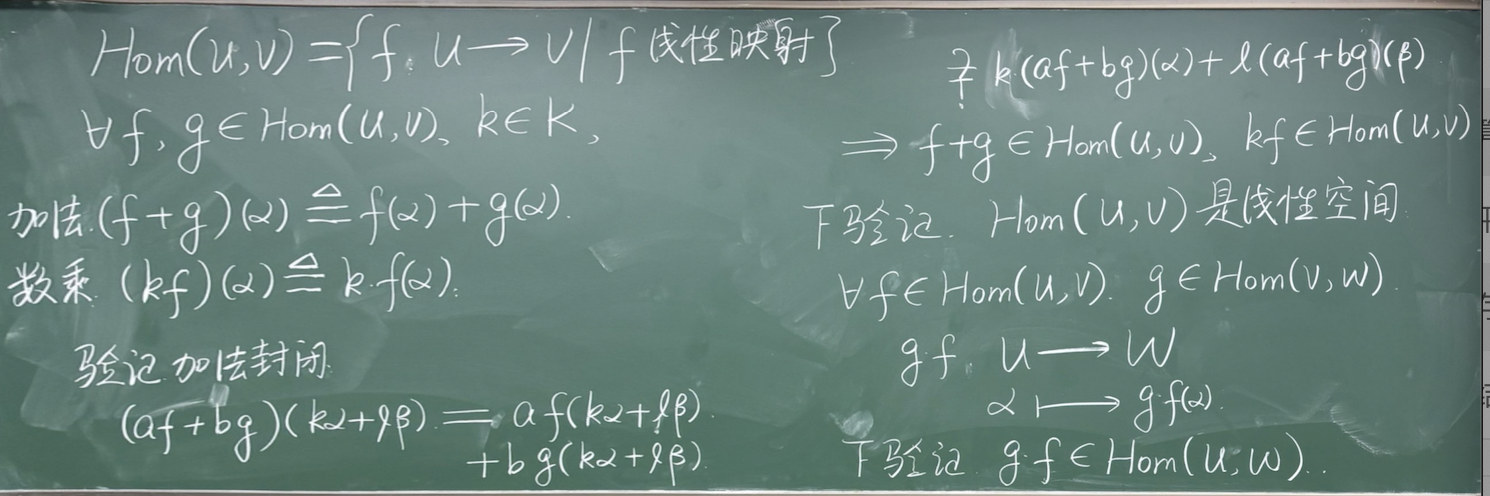 Hom(U,V)={f: U→V | f 线性映射}
∀f, g∈Hom(U,V)、k∈K,
加法.(f+g)(α)≜f(α)+g(α).
数乘.(kf)(α)≜k·f(α).
验记加法封闭.
(af+bg)(kα+lβ)=af(kα+lβ)
+bg(kα+lβ)
k(af+bg)(α)+l(af+bg)(β)
⟹ f+g∈Hom(U,V)、kf∈Hom(U,V)
下验记. Hom(U,V)是线性空间.
∀f∈Hom(U,V). g∈Hom(V,W).
g·f. U⟶W
α⟼g·f(α).
下验记 g·f∈Hom(U,W)..